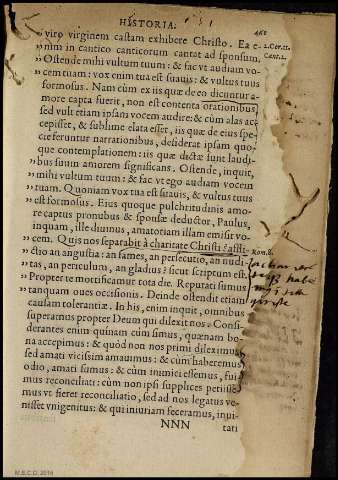 HISTORIA.
461
viro virginem castam exhibere Christo. Ea e-
nim in cantico canticorum cantat ad sponsum.
Ostende mihi vultum tuum: & fac vt audiam vo-
cem tuam: vox enim tua est suauis: & vultus tuus
formosus. Nam cùm ex iis quæ de eo dicuntur a-
more capta fuerit, non est contenta orationibus,
sed vult etiam ipsam vocem audire: & cùm alas ac-
cepisset, & sublime elata esset, iis quæ de eius spe-
cie feruntur narrationibus, desiderat ipsam quo-
que contemplationem: iis quæ dicta sunt laudi-
bus suum amorem significans. Ostende, inquit,
mihi vultum tuum: & fac vt ego audiam vocem
tuam. Quoniam vox tua est suauis, & vultus tuus
est formosus. Eius quoque pulchritudinis amo-
re captus pronubus & sponsæ deductor, Paulus,
inquam, ille diuinus, amatoriam illam emisit vo-
cem. Quis nos separabit à charitate Christi? affli-
ctio an angustia: an fames, an persecutio, an nudi-
tas, an periculum, an gladius? sicut scriptum est
Propter te mortificamur tota die. Reputati sumus
tanquam oues occisionis. Deinde ostendit etiam
causam tolerantiæ. In his, enim inquit, omnibus
superamus propter Deum qui dilexit nos. Consi-
derantes enim quinam cùm simus, quænam bo-
na accepimus: & quòd non nos primi dileximus,
sed amati vicissim amauimus: & cùm haberemus
odio, amati sumus: & cùm inimici essemus, fui
mus reconciliati: cùm non ipsi supplices petiisse
mus vt fieret reconciliatio, sed ad nos legatus ve-
nisset vnigenitus: & qui iniuriam feceramus, inui-
NNN
tati
2.Cor.11.
Cant.2.
Rom.8.
M.E.C.D. 2016